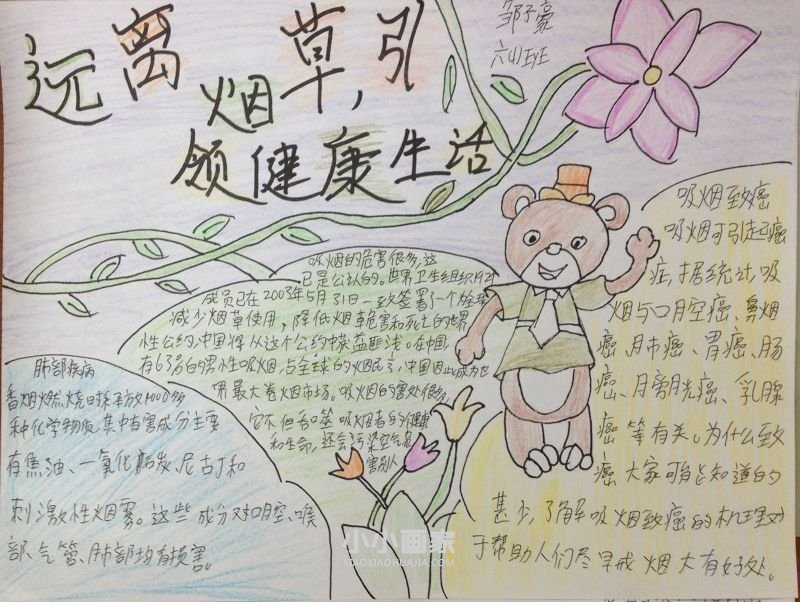 远离烟草,引
领健康生活
邹子豪
六(1)班
吸烟的危害很多,这
已是公认的。世界卫生组织
成员已在2003年5月31日一致签署了一个
减少烟草使用,降低烟草危害和死亡的世界
性公约,中国将从这个公约中获益匪浅。在中国,
有63%的男性吸烟,占全球的
界最大卷烟市场。吸烟的害处很多,
它不但吞噬吸烟者的健康
和生命,还会污染空气,危
害别人
肺部疾病
香烟燃烧时释放4000多
种化学物质,其中有害成分主要
有焦油、一氧化
刺激性烟雾。这些成分对口腔、喉
部、气管、肺部均有损害。
吸烟致癌
吸烟可引起癌
症,据统计,吸
烟与口腔癌、鼻烟
癌、肺癌、胃癌、肠
癌、膀胱癌、乳腺
癌等有关。为什么致
癌大家可能知道的
甚少,了解吸烟致癌的机理对
于帮助人们尽早戒烟大有好处。
小小画家
XIAOXIAOHUAJIA.COM